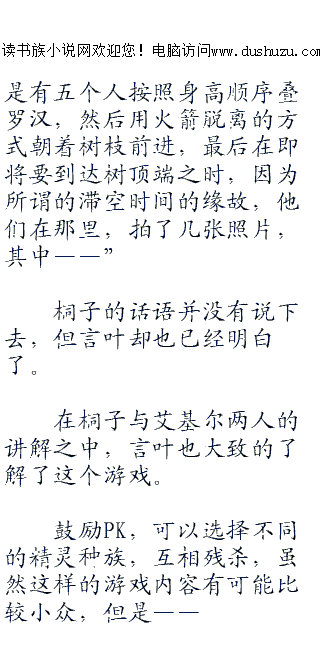 读书族小说网欢迎您！电脑访问www.dushuzu.com
是有五个人按照身高顺序叠
罗汉，然后用火箭脱离的方
式朝着树枝前进，最后在即
将要到达树顶端之时，因为
所谓的滞空时间的缘故，他
们在那里，拍了几张照片，
其中——”
桐子的话语并没有说下
去，但言叶却也已经明白
了。
在桐子与艾基尔两人的
讲解之中，言叶也大致的了
解了这个游戏。
鼓励PK，可以选择不同
的精灵种族，互相残杀，虽
然这样的游戏内容有可能比
较小众，但是——